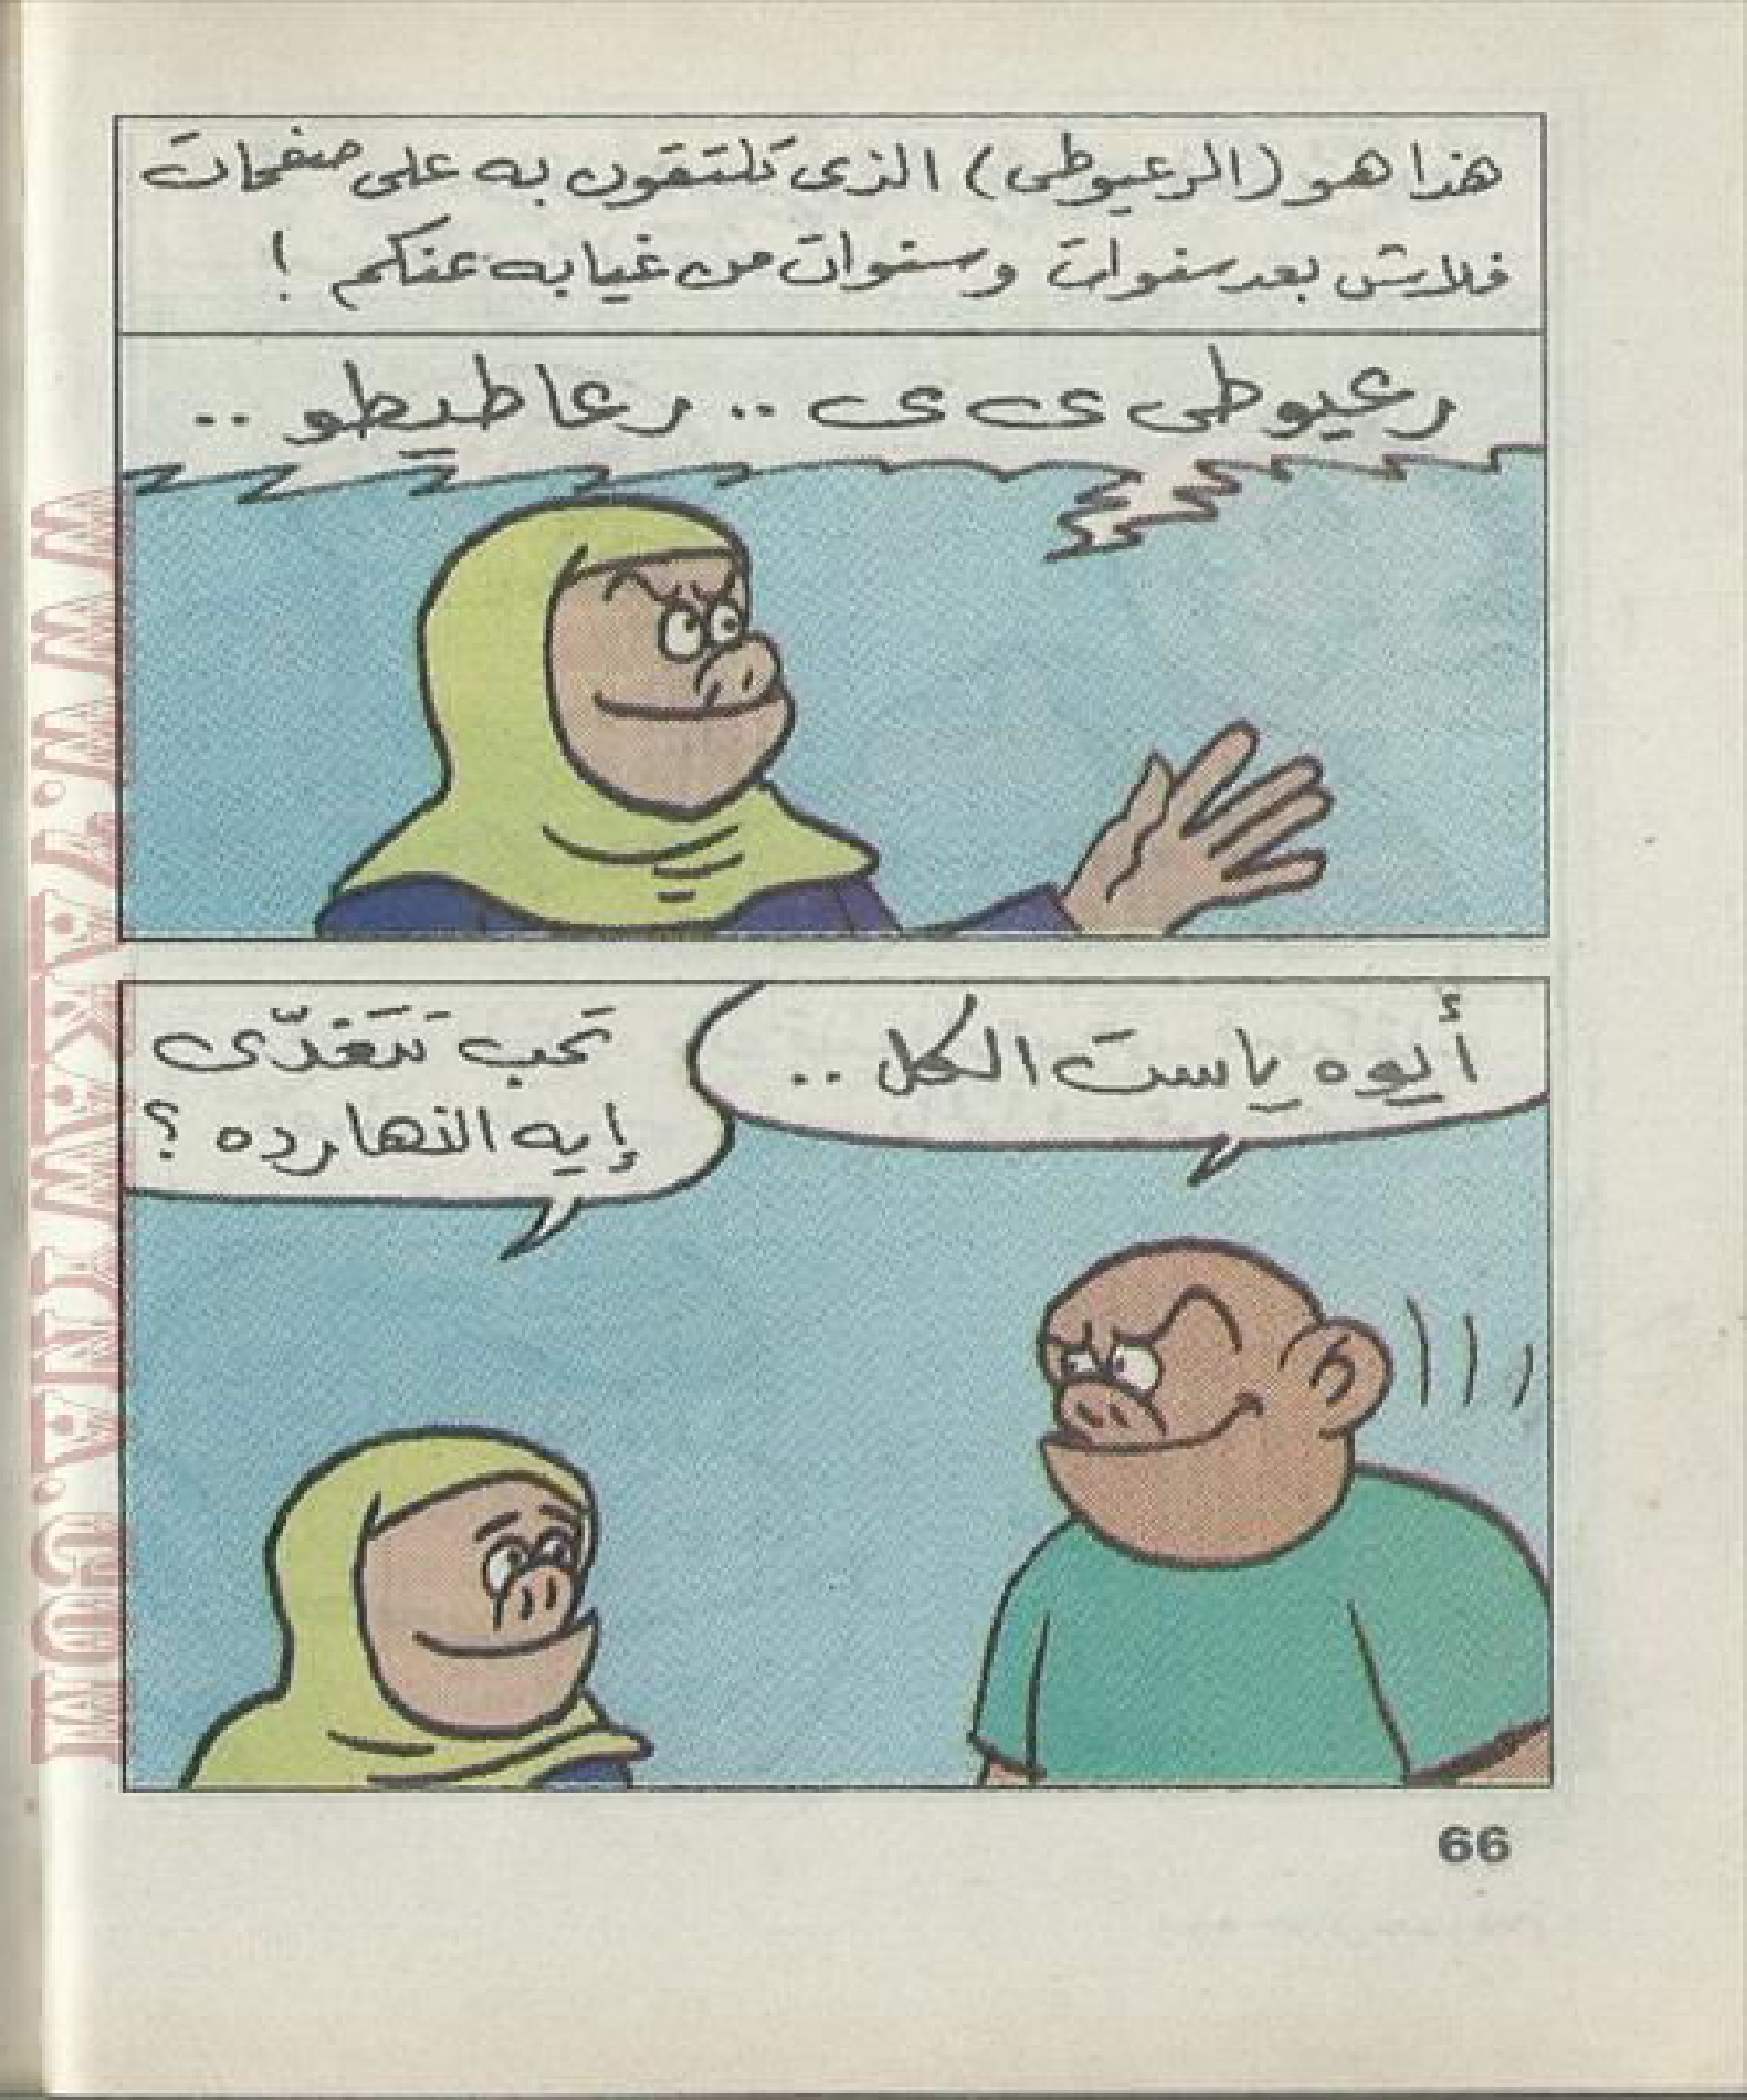 هذا هو (الرعيوطى) الذى تلتقون به على صفحات
فلاش بعد سنوات وسنوات من غيابه عنكم !
رعيوطى ى ى .. رعاطيطو ..
أيوه ياست الكل ..
تحب تتغدّى
إيه النهارده ؟
66